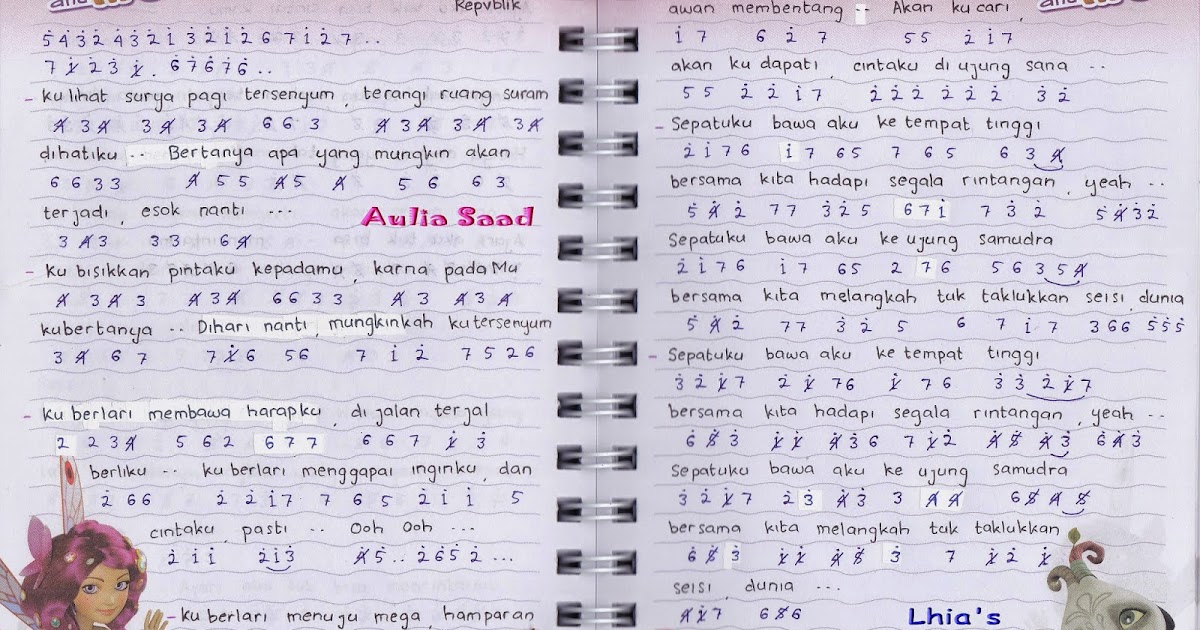 Repvblik
5 4 3 2 4 3 2 1 3 2 1 2 6 7 1 2 7 . .
7 1 2 3 1 . 6 7 6 7 6 . .
- ku lihat surya pagi tersenyum, terangi ruang suram
4 3 4 3 4 3 4 6 6 3 4 3 4 3 4 3 4
dihatiku ... Bertanya apa yang mungkin akan
6 6 3 3 4 5 5 4 5 4 5 6 6 3
terjadi, esok nanti ...
Aulia Saad
3 4 3 3 3 6 4
- Ku bisikkan pintaku kepadamu, karna pada Mu
4 3 4 3 4 3 4 6 6 3 3 4 3 4 3 4
kubertanya .. Dihari nanti, mungkinkah kutersenyum
3 4 6 7 7 1 6 5 6 7 1 2 7 5 2 6
- ku berlari membawa harapku, di jalan terjal
2 2 3 4 5 6 2 6 7 7 6 6 7 1 3
berliku .. ku berlari menggapai inginku, dan
2 6 6 2 2 1 7 7 6 5 2 1 1 5
cintaku, pasti .. Ooh Ooh ...
2 1 1 2 1 3 4 5 . . 2 6 5 2 ...
- ku berlari menuju mega, hamparan
awan membentang .. Akan ku cari,
1 7 6 2 7 5 5 2 1 7
akan ku dapati, cintaku di ujung sana ..
5 5 2 2 1 7 2 2 2 2 2 2 3 2
- Sepatuku bawa aku ke tempat tinggi
2 1 7 6 1 7 6 5 7 6 5 6 3 4
bersama kita hadapi segala rintangan, yeah ..
5 4 2 7 7 3 2 5 6 7 1 7 3 2 5 4 3 2
Sepatuku bawa aku ke ujung samudra
2 1 7 6 1 7 6 5 2 7 6 5 6 3 5 4
bersama kita melangkah tuk taklukkan seisi dunia
5 4 2 7 7 3 2 5 6 7 1 7 3 6 6 5 5 5
- Sepatuku bawa aku ke tempat tinggi
3 2 1 7 2 1 7 6 1 7 6 3 3 2 1 7
bersama kita hadapi segala rintangan, yeah ..
6 5 3 1 1 4 3 6 7 1 2 4 5 4 3 6 4 3
Sepatuku bawa aku ke ujung samudra
3 2 1 7 2 3 4 3 3 4 4 6 5 4 5
bersama kita melangkah tuk taklukkan
6 5 3 1 1 4 5 3 7 1 2 1
seisi, dunia ...
4 1 7 6 5 6
Lhia's